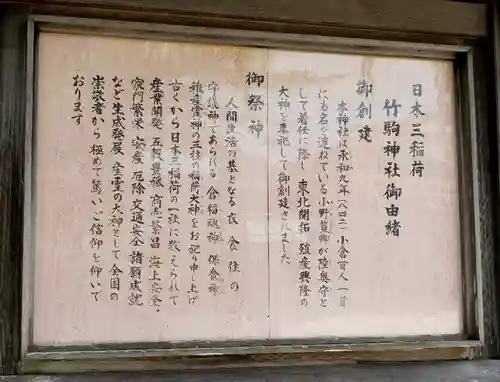 日本三稲荷
竹駒神社御由緒
御創建
本神社は承和九年(八四二)小倉百人一首
にも名を連ねている小野篁卿が陸奥守と
して着任に際し、東北開拓、殖産興隆の
大神を奉祀して御創建されました
御祭神
人間生活の基となる衣、食、住の
守護神であられる倉稲魂神、保食神
稚産霊神の三柱の稲荷大神をお祀り申し上げ
古くから日本三稲荷の一社に数えられて
産業開発、五穀豊穣、商売繁昌、海上安全、
家門繁栄、安産、厄除、交通安全、諸願成就
など生成発展、産霊の大神として全国の
崇敬者から極めて篤いご信仰を仰いで
おります